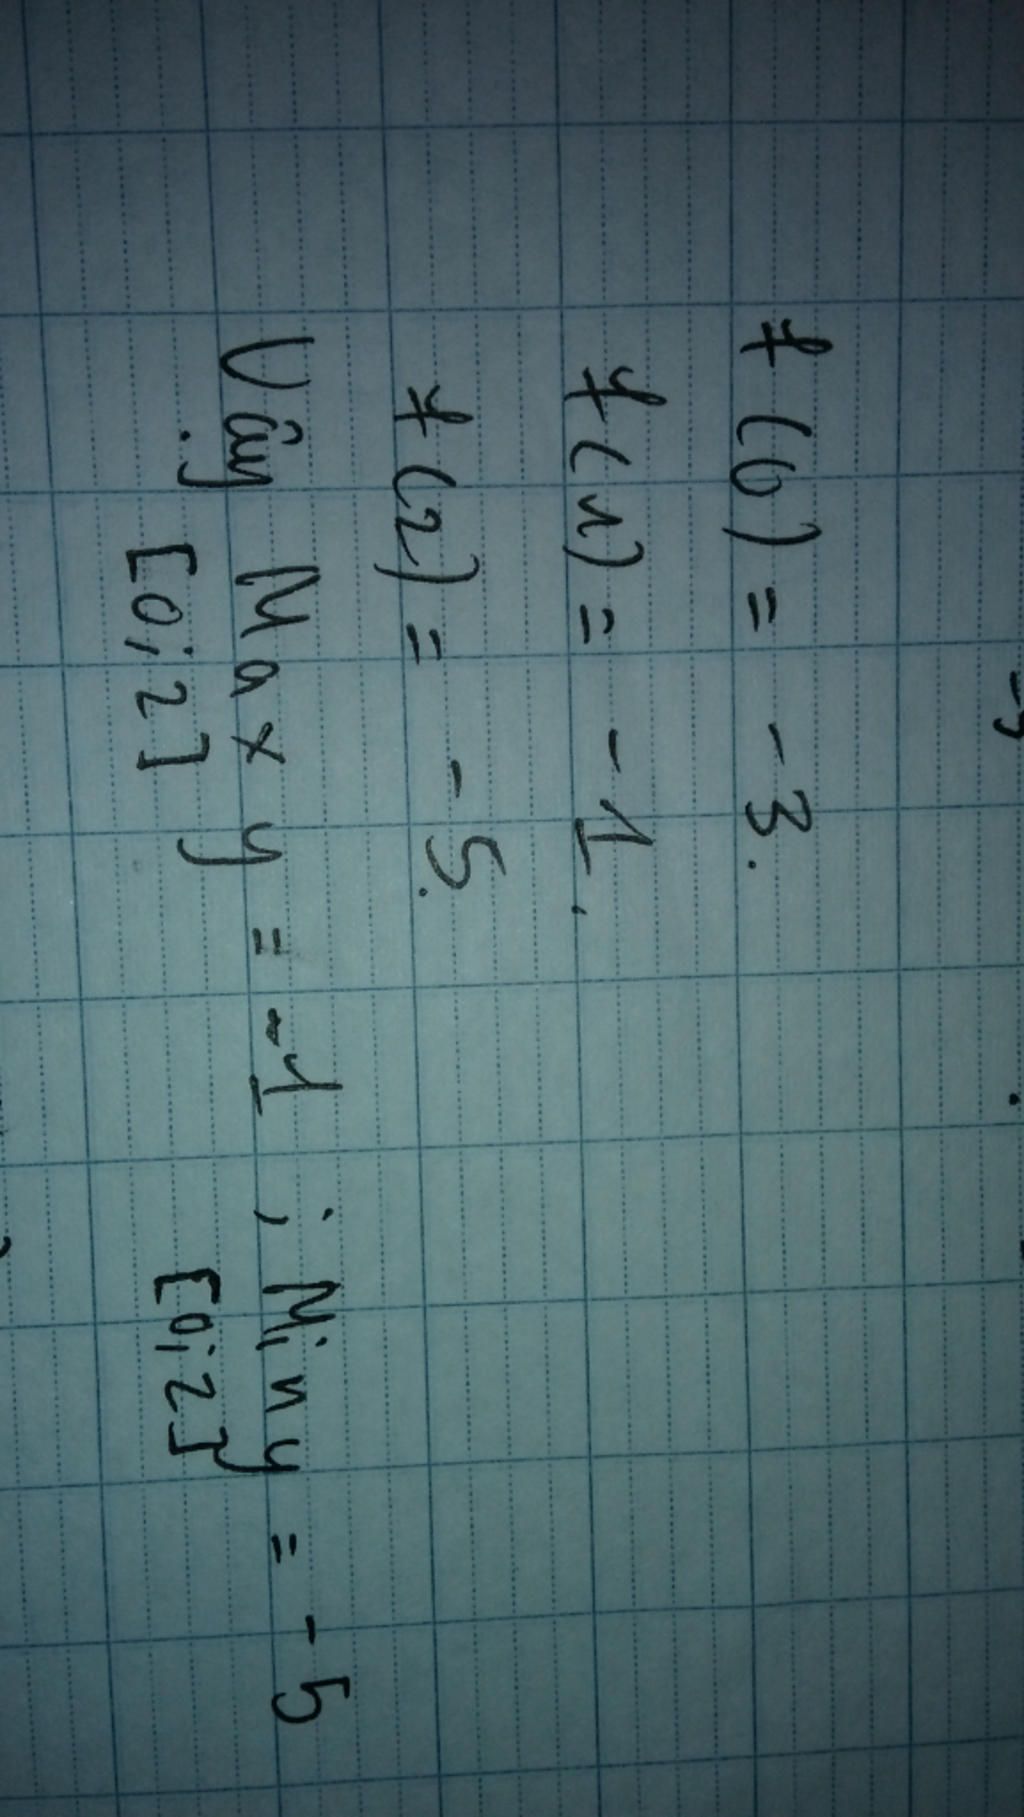 f(0) = -3.
f(1) = -1.
f(2) = -5.
Vậy Max y = -1 ; Min y = -5
[0;2] [0;2]